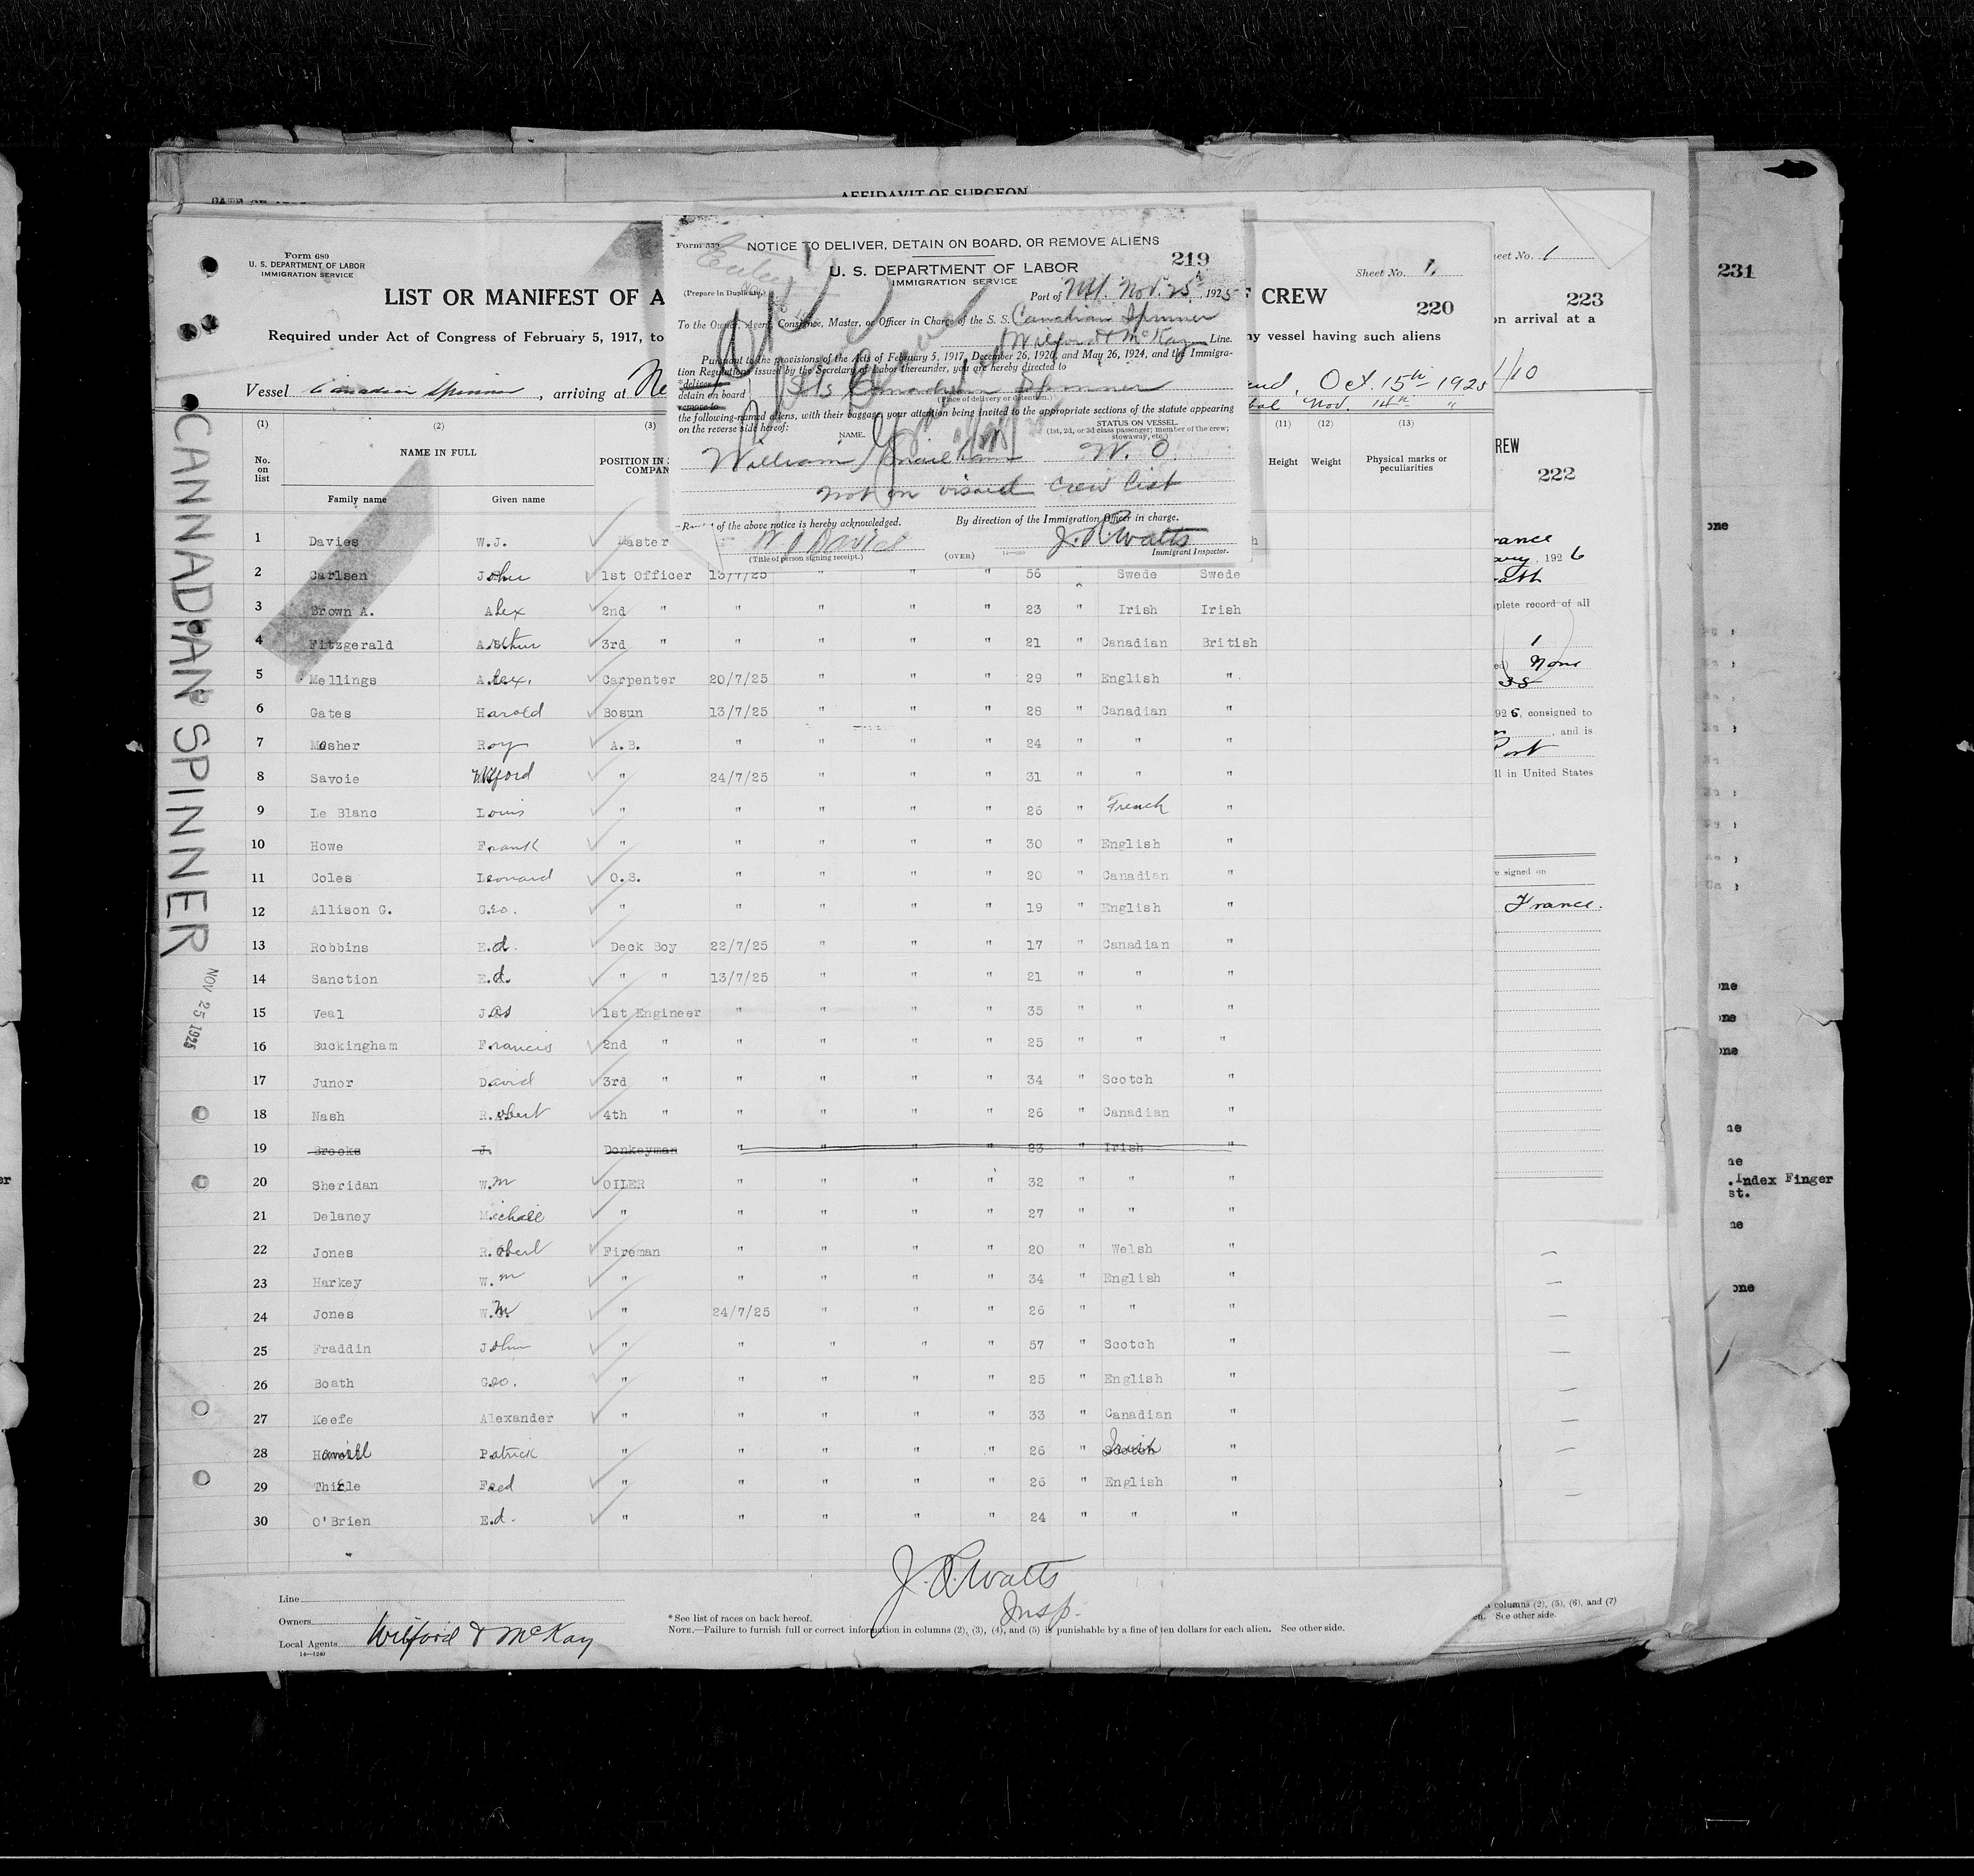 AFFIDAVIT OF SURGEON
Form 680
U. S. DEPARTMENT OF LABOR
IMMIGRATION SERVICE
LIST OR MANIFEST OF A
Required under Act of Congress of February 5, 1917, to
Vessel Canadian Spinner, arriving at Ne
Form 539
NOTICE TO DELIVER, DETAIN ON BOARD, OR REMOVE ALIENS
219
U. S. DEPARTMENT OF LABOR
IMMIGRATION SERVICE
(Prepare in Duplicate.)
Port of Nov. 25 1925
To the Owner, Agent, Consignee, Master, or Officer in Charge of the S. S. Canadian Spinner
Wilford & McKay Line.
Pursuant to the provisions of the Acts of February 5, 1917, December 26, 1920, and May 26, 1924, and the Immigra-
tion Regulations issued by the Secretary of Labor thereunder, you are hereby directed to
*deliver to
detain on board
remove to
S/s Canadian Spinner
(Place of delivery or detention.)
the following-named aliens, with their baggage, your attention being invited to the appropriate sections of the statute appearing
on the reverse side hereof:
NAME.
STATUS ON VESSEL
(1st, 2d, or 3d class passenger; member of the crew;
stowaway, etc.)
William W. O.
not on visaed crew list
of the above notice is hereby acknowledged.
By direction of the Immigration Officer in charge.
W J Davies
J. R. Watts
(Title of person signing receipt.)
(OVER)
Immigrant Inspector.
Sheet No. 1.
CREW
220
ny vessel having such aliens
Oct. 15th 1925
Nov. 14th "
eet No. 1
223
on arrival at a
1/10
REW
222
231
(1) (2) (3) (11) (12) (13)
No.
on
list
NAME IN FULL
Family name
Given name
POSITION IN
COMPAN
Height
Weight
Physical marks or
peculiarities
1 Davies W.J. Master
2 Carlsen John 1st Officer 13/7/25 " " " 56 " Swede Swede
3 Brown A. Alex 2nd " " " " " 23 " Irish Irish
4 Fitzgerald Arthur 3rd " " " " " 21 " Canadian British
5 Mellings Alex. Carpenter 20/7/25 " " " 29 " English "
6 Gates Harold Bosun 13/7/25 " " " 28 " Canadian "
7 Mosher Roy A.B. " " " " 24 " " "
8 Savoie Wilford " 24/7/25 " " " 31 " " "
9 Le Blanc Louis " " " " " 26 " French "
10 Howe Frank " " " " " 30 " English "
11 Coles Leonard O.S. " " " " 20 " Canadian "
12 Allison G. Geo. " " " " " 19 " English "
13 Robbins Ed. Deck Boy 22/7/25 " " " 17 " Canadian "
14 Sanction Ed. " " 13/7/25 " " " 21 " " "
15 Veal Jas 1st Engineer " " " " 35 " " "
16 Buckingham Francis 2nd " " " " " 25 " " "
17 Junor David 3rd " " " " " 34 " Scotch "
18 Nash Robert 4th " " " " " 26 " Canadian "
19 Brooks J. Donkeyman " " " " 23 " Irish "
20 Sheridan Wm OILER " " " " 32 " " "
21 Delaney Michael " " " " " 27 " " "
22 Jones Robert Fireman " " " " 20 " Welsh "
23 Harkey Wm " " " " " 34 " English "
24 Jones Wm " 24/7/25 " " " 26 " " "
25 Fraddin John " " " " " 57 " Scotch "
26 Boath Geo. " " " " " 25 " English "
27 Keefe Alexander " " " " " 33 " Canadian "
28 Hamill Patrick " " " " " 26 " Irish "
29 Fred " " " " " 26 " English "
30 O'Brien Ed. " " " " " 24 " " "
CANNADIAN SPINNER
NOV 25 1925
rance
1926
plete record of all
1
None
38
1926, consigned to
, and is
Port
ll in United States
e signed on
France.
one
one
one
one
ne
ne
. Index Finger
st.
ne
one
J. R. Watts
Insp.
Line
Owners
Local Agents Wilford & McKay
14—1240
* See list of races on back hereof.
NOTE.—Failure to furnish full or correct information in columns (2), (3), (4), and (5) is punishable by a fine of ten dollars for each alien. See other side.
columns (2), (5), (6), and (7)
en. See other side.